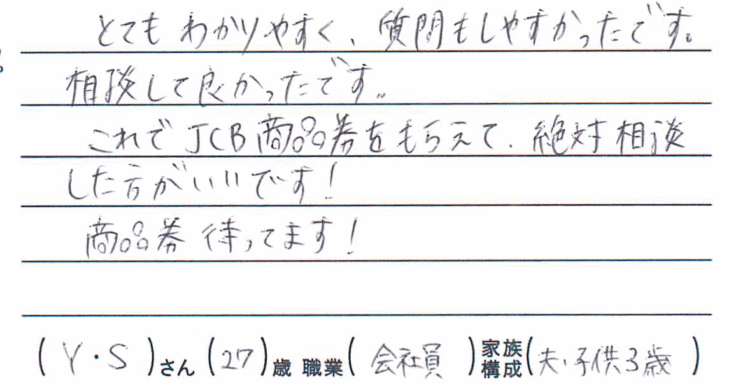 とてもわかりやすく、質問もしやすかったです。
相談して良かったです。
これでJCB商品券をもらえて、絶対相談
した方がいいです!
商品券待ってます!
(Y・S)さん(27)歳 職業(会社員)家族構成(夫・子供3歳)